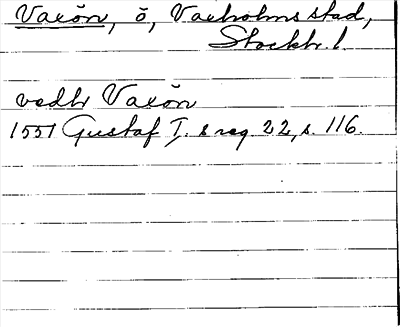 Vaxön, ö, Vaxholms stad,
Stockh. l.
vedh Vaxön
1551 Gustaf I:s reg. 22, s. 116.